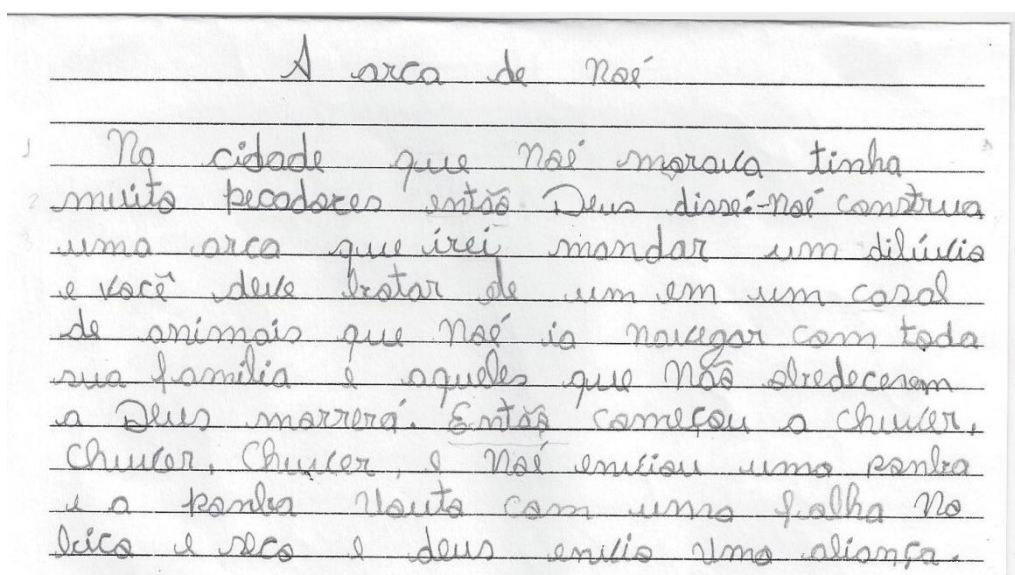 A arca de Noé
Na cidade que Noé morava tinha
muito pecadores então Deus disse:-Noé construa
uma arca que irei mandar um dilúvio
e você deve botar de um em um casal
de animais que Noé ia navegar com toda
sua família e aqueles que não obredecerem
a Deus morrerá. Então começou a chuver,
chuver, chuver, e Noé enviou uma ponba
e a ponba vouto com uma folha no
bico e seco e deus envio uma aliança.